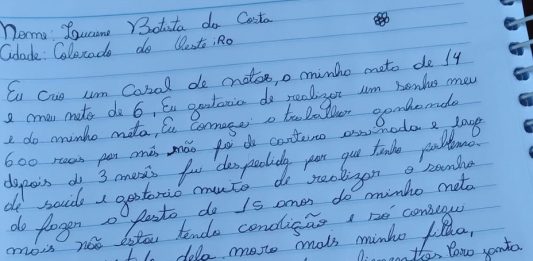 Nome: Luciene Batista da Costa
Cidade: Colorado do Oeste: RO
Eu crio um Casal de netos, o minha neta de 14
e meu neto de 6, Eu gostaria de realizar um sonho meu
e da minha neta, Eu comecei o trabalhar ganhando
600 reais por mês não foi de carteira assinada e logo
depois de 3 meses fui despedida por que tenho problema
de saúde e gostaria muito de realizar o sonho
de fazer a festa de 15 anos da minha neta
mais não estou tendo condição e só consegui
dela mora mals minha filha,
Para janta